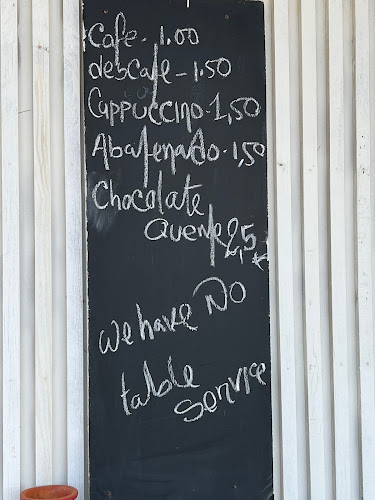 Cafe - 1.00
descafe - 1.50
Cappuccino. 1,50
Abafenado. 1,50
Chocolate
Quente 2,5
we have No
table
service